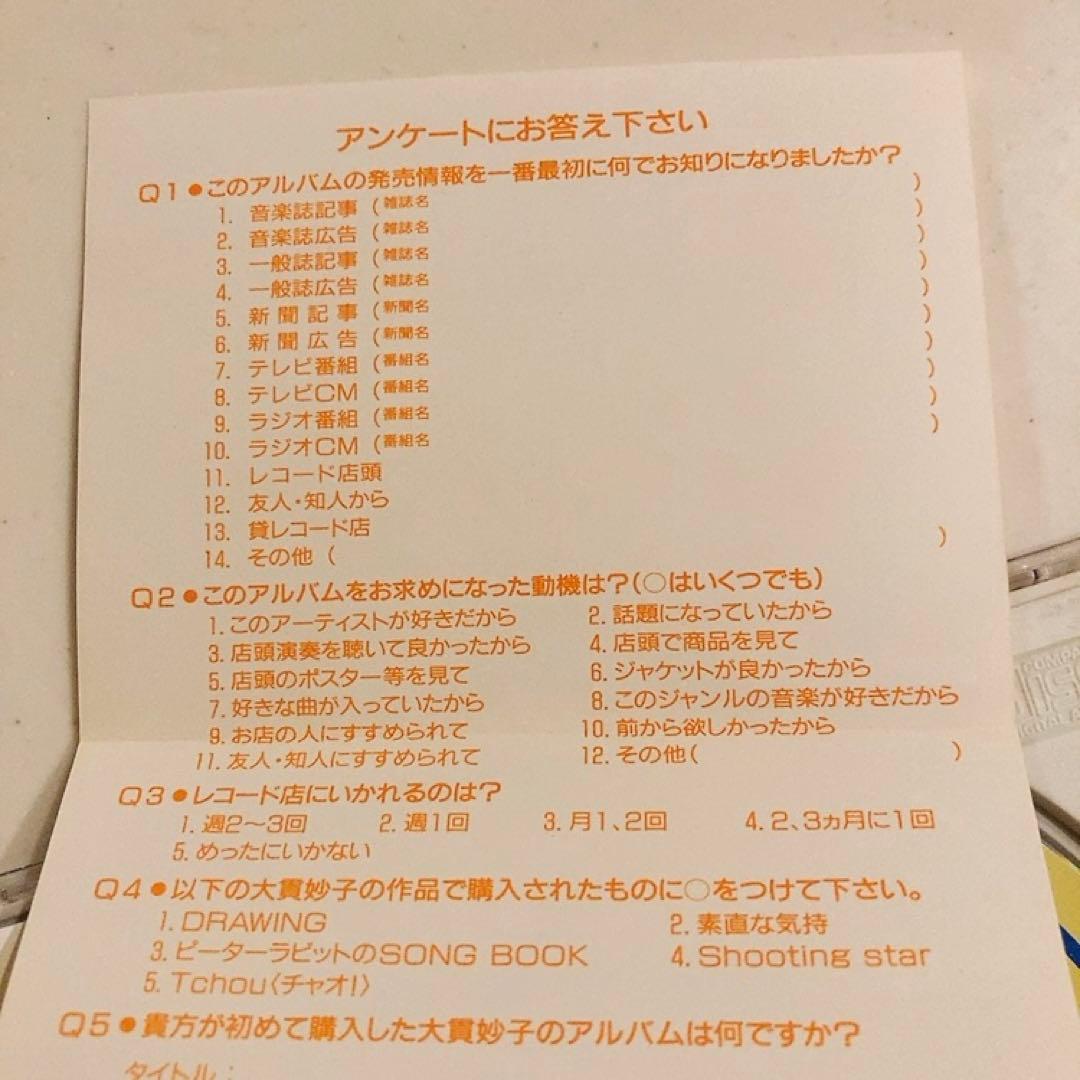 アンケートにお答え下さい
Q1●このアルバムの発売情報を一番最初に何でお知りになりましたか?
1. 音楽誌記事 (雑誌名 )
2. 音楽誌広告 (雑誌名 )
3. 一般誌記事 (雑誌名 )
4. 一般誌広告 (雑誌名 )
5. 新聞記事 (新聞名 )
6. 新聞広告 (新聞名 )
7. テレビ番組 (番組名 )
8. テレビCM (番組名 )
9. ラジオ番組 (番組名 )
10. ラジオCM (番組名 )
11. レコード店頭
12. 友人・知人から
13. 貸レコード店
14. その他 ( )
Q2●このアルバムをお求めになった動機は?(○はいくつでも)
1. このアーティストが好きだから 2. 話題になっていたから
3. 店頭演奏を聴いて良かったから 4. 店頭で商品を見て
5. 店頭のポスター等を見て 6. ジャケットが良かったから
7. 好きな曲が入っていたから 8. このジャンルの音楽が好きだから
9. お店の人にすすめられて 10. 前から欲しかったから
11. 友人・知人にすすめられて 12. その他( )
Q3●レコード店にいかれるのは?
1. 週2〜3回 2. 週1回 3. 月1、2回 4. 2、3ヵ月に1回
5. めったにいかない
Q4●以下の大貫妙子の作品で購入されたものに○をつけて下さい。
1. DRAWING 2. 素直な気持
3. ピーターラビットのSONG BOOK 4. Shooting star
5. Tchou〈チャオ!〉
Q5●貴方が初めて購入した大貫妙子のアルバムは何ですか?
タイトル: